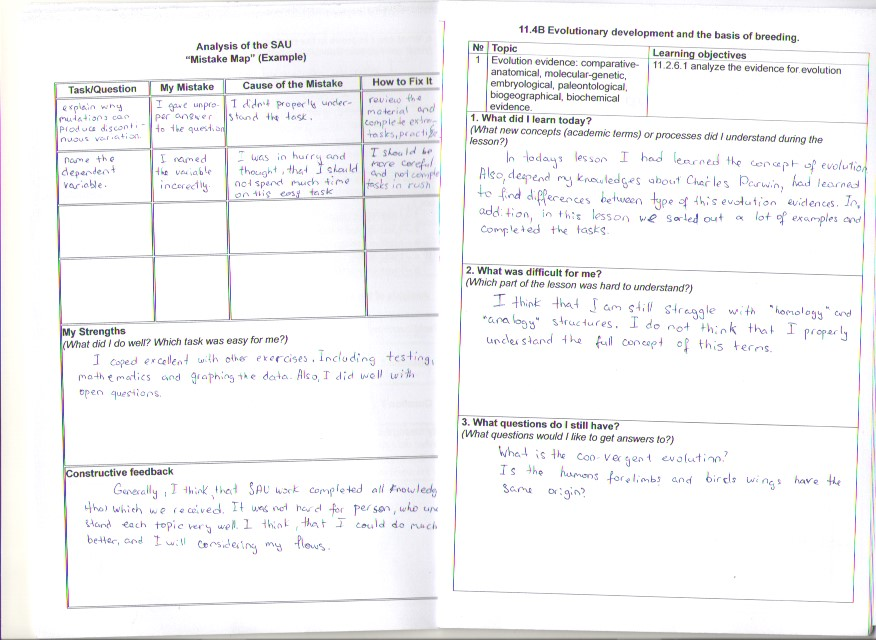 Analysis of the SAU
"Mistake Map" (Example)
Task/Question
My Mistake
Cause of the Mistake
How to Fix It
explain why
mutations can
produce disconti-
nuous variation.
I gave unpro-
per answer
to the question
I didn't properly under-
stand the task.
review the
material and
complete extra
tasks, practise
name the
dependent
variable.
I named
the variable
incorectly.
I was in hurry and
thought, that I should
not spend much time
on this easy task
I should be
more careful
and not comple
tasks in rush
My Strengths
(What did I do well? Which task was easy for me?)
I coped excellent with other exercises. Including testing,
mathematics and graphing the data. Also, I did well with
open questions.
Constructive feedback
Generally, I think, that SAU work completed all knowledg
that which we received. It was not hard for person, who un
stand each topic very well. I think, that I could do much
better, and I will considering my flaws.
11.4B Evolutionary development and the basis of breeding.
№ Topic
Learning objectives
1 Evolution evidence: comparative-
anatomical, molecular-genetic,
embryological, paleontological,
biogeographical, biochemical
evidence.
11.2.6.1 analyze the evidence for evolution
1. What did I learn today?
(What new concepts (academic terms) or processes did I understand during the
lesson?)
In todays lesson I had learned the concept of evolution
Also, deepend my knowledges about Charles Darwin, had learned
to find differences between type of this evolution evidences. In,
addition, in this lesson we sorted out a lot of examples and
completed the tasks.
2. What was difficult for me?
(Which part of the lesson was hard to understand?)
I think that I am still straggle with "homology" and
"analogy" structures. I do not think that I properly
understand the full concept of this terms.
3. What questions do I still have?
(What questions would I like to get answers to?)
What is the convergent evolution?
Is the humans forelimbs and birds wings have the
same origin?